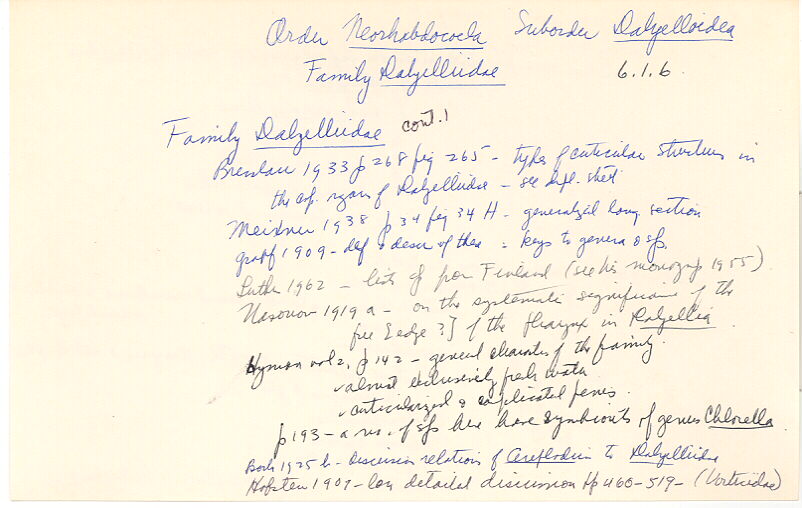 Order Neorhabdocoela Suborder Dalyelloidea
Family Dalyelliidae 6.1.6
Family Dalyelliidae cont.1
Bresslau 1933 p 268 fig 265 - types of cuticular structures in
the cop. organ of Dalyelliidae - see depl. sheet
Meixner 1938 p 34 fig 34 H - generalized long. section
Graff 1909 - def & descr of thea : keys to genera & sp.
Luther 1962 - lists sp from Finland (see his monograp 1955)
Nasonov 1919 a - on the systematic significance of the
free [edge ?] of the pharynx in Dalyellia
Hyman vol 2, p 142 - general characters of the family.
- almost exclusively fresh water
- cuticularized & complicated penis.
p 193 - a no. of sps here have symbionts of genus Chlorella
1925 b - Discussion relations of to Dalyelliidae
Hofsten 1907 - long detailed discussion pp 460-519 - (Vorticidae)